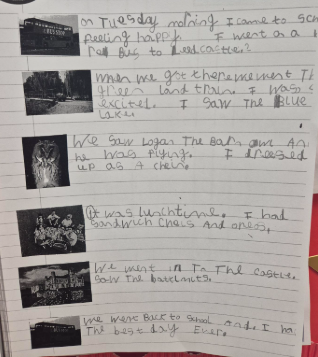 on Tuesday morning I came to sch
feeling happy. I went on a
red Bus to Leedcastle?
When we got there we went Th
green land train. I was s
excited. I saw The Blue
Lake.
We saw Logan The Barn owl An
he was flying. I dressed
up as a chein.
It was lunchtime. I had
Sandwich Chees And
We went in To The castle.
Saw the battlments.
we went Back to School and I ha
The best day Ever.